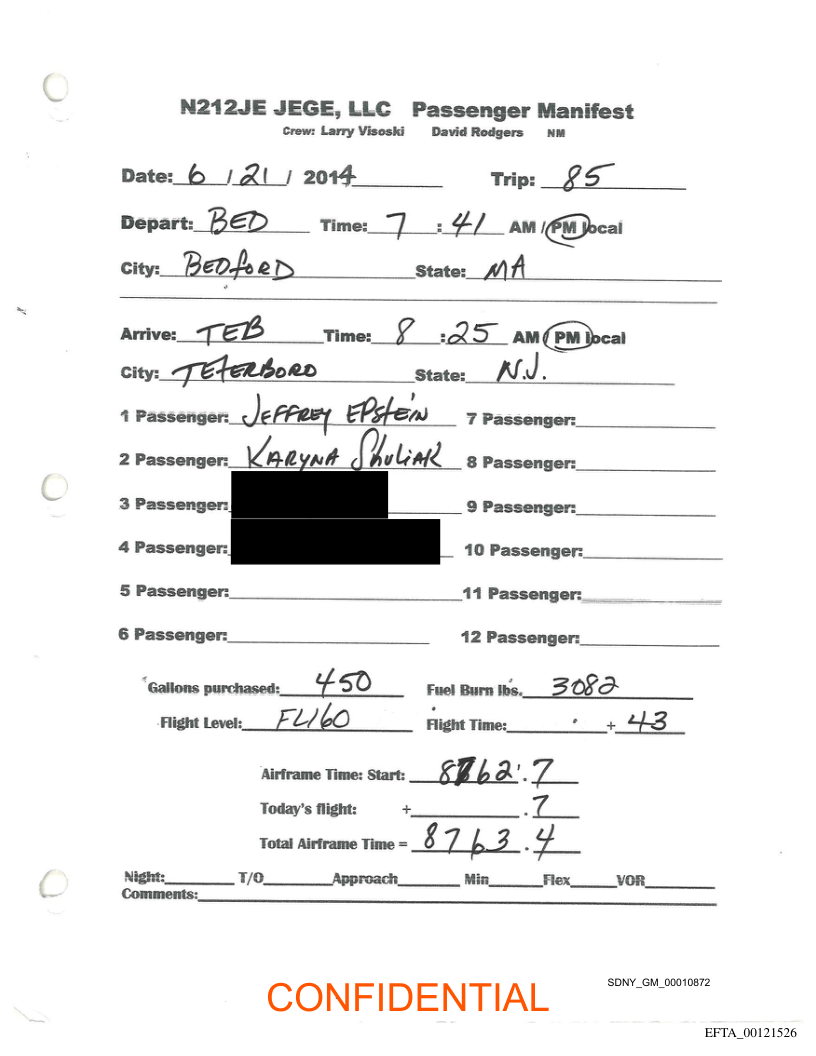 N212JE JEGE, LLC Passenger Manifest
Crew: Larry Visoski David Rodgers NM
Date: 6 / 21 / 2014 Trip: 85
Depart: BED Time: 7 : 41 AM / PM local
City: BEDFORD State: MA
Arrive: TEB Time: 8 : 25 AM / PM local
City: TETERBORO State: N.J.
1 Passenger: JEFFREY EPSTEIN 7 Passenger:
2 Passenger: KARYNA SHULIAK 8 Passenger:
3 Passenger: 9 Passenger:
4 Passenger: 10 Passenger:
5 Passenger: 11 Passenger:
6 Passenger: 12 Passenger:
Gallons purchased: 450 Fuel Burn lbs. 3082
Flight Level: FL160 Flight Time: + 43
Airframe Time: Start: 8762.7
Today's flight: + .7
Total Airframe Time = 8763.4
Night: T/O Approach Min Flex VOR
Comments:
SDNY_GM_00010872
CONFIDENTIAL
EFTA_00121526